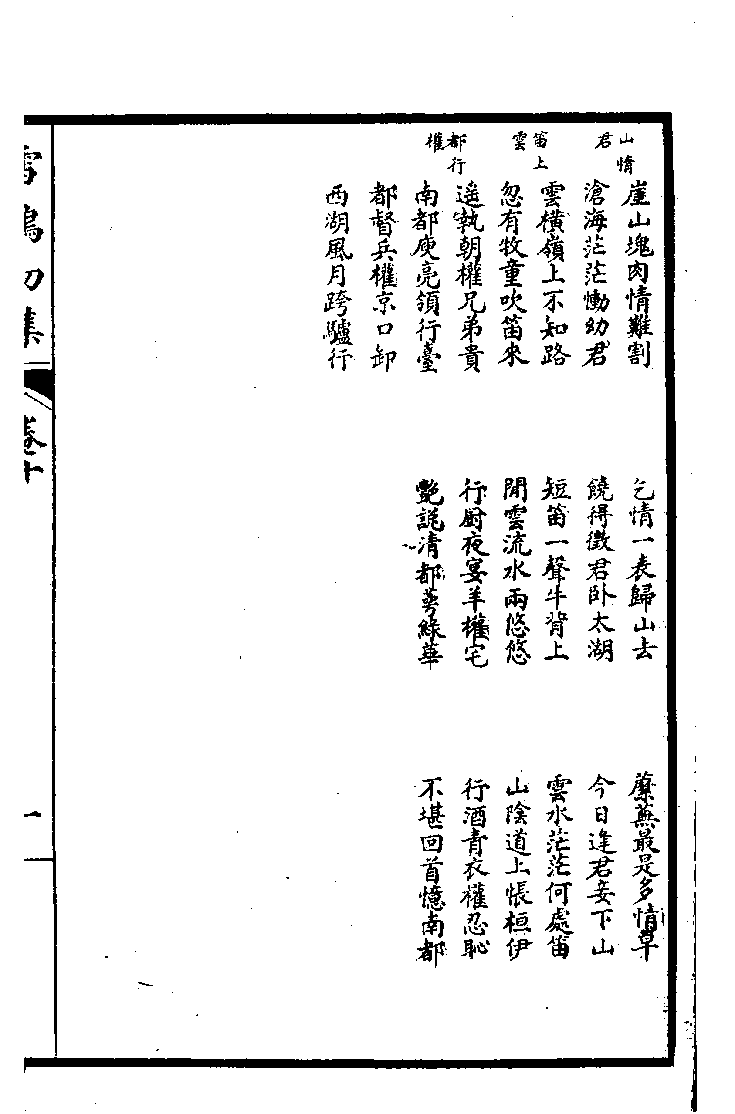 山情君
崖山塊肉情難割
滄海茫茫慟幼君
乞情一表歸山去
饒得徵君卧太湖
蘼蕪最是多情草
今日逢君妾下山
笛上雲
雲橫嶺上不知路
忽有牧童吹笛來
短笛一聲牛背上
閒雲流水兩悠悠
雲水茫茫何處笛
山陰道上悵桓伊
都行權
遥執朝權兄弟貴
南都庾亮領行臺
行厨夜宴羊權宅
艷說清都萼綠華
行酒青衣權忍恥
不堪回首憶南都
都督兵權京口卸
西湖風月跨驢行
雪鴻初集
卷十
一